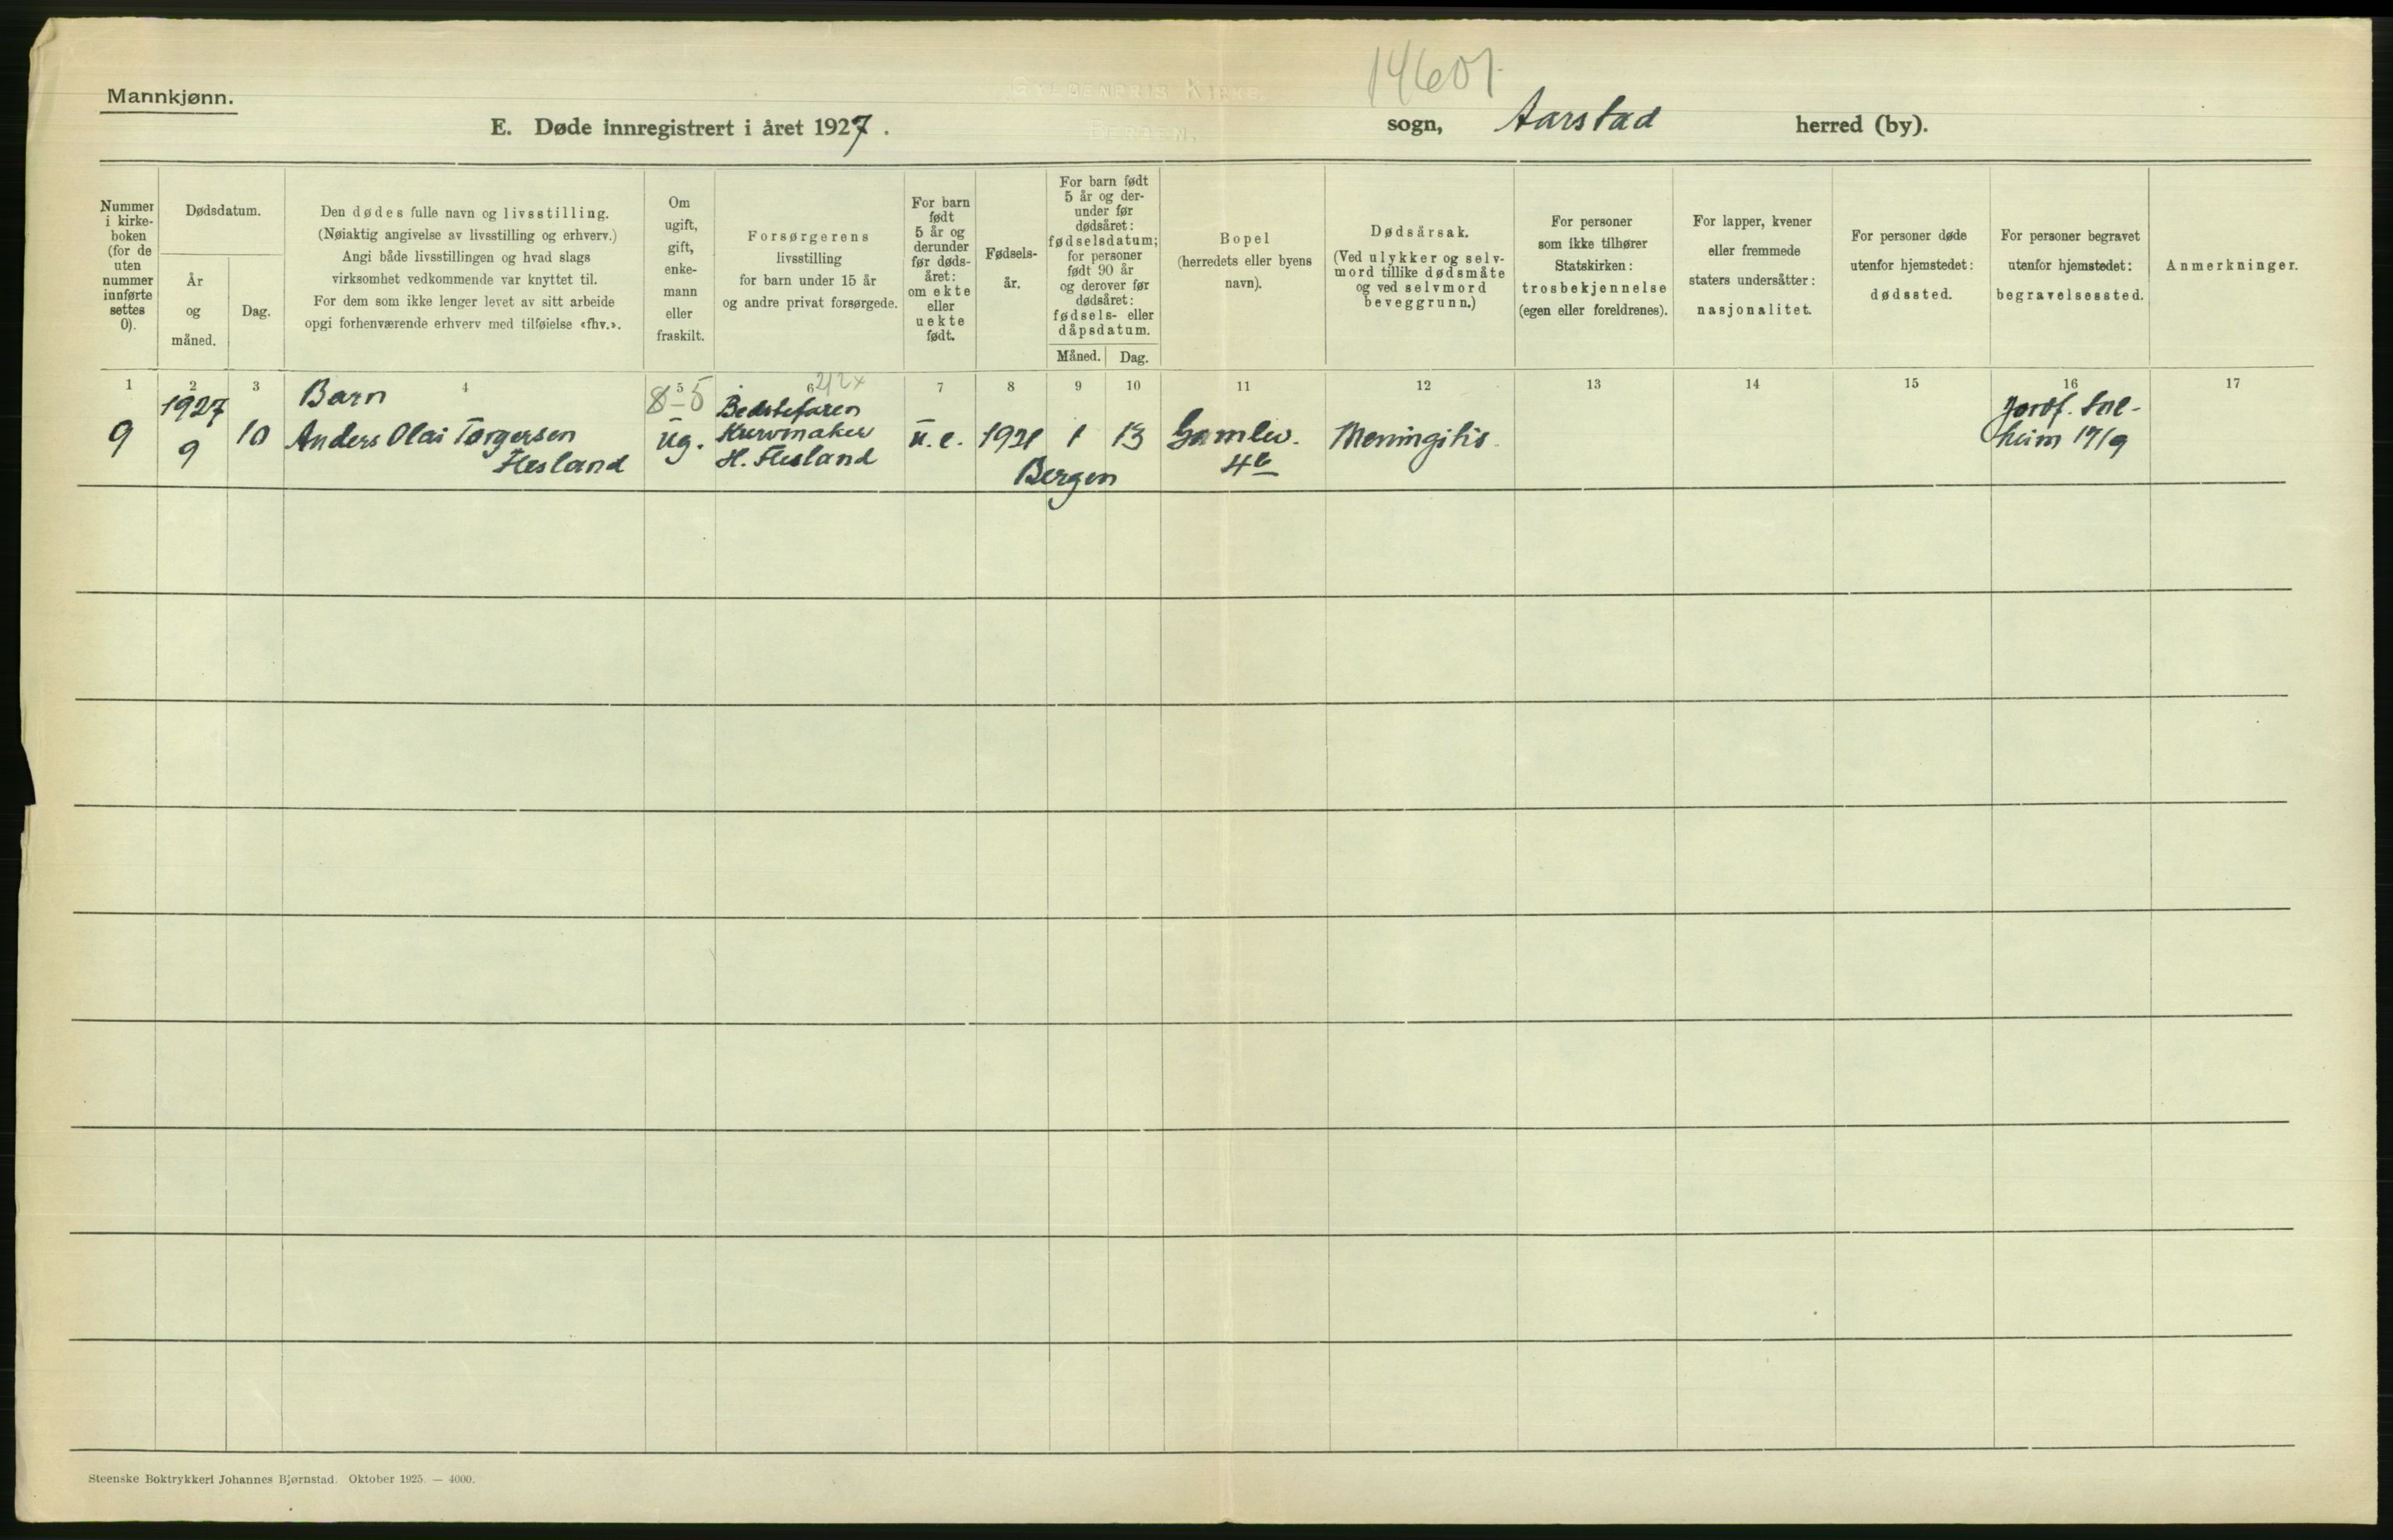 14601
GYLDENPRIS KIRKE.
BERGEN.
Mannkjønn.
E. Døde innregistrert i året 1927. sogn, Aarstad herred (by).
Nummer
i kirke-
boken
(for de
uten
nummer
innførte
settes
0).
Dødsdatum.
År
og
måned.
Dag.
Den dødes fulle navn og livsstilling.
(Nøiaktig angivelse av livsstilling og erhverv.)
Angi både livsstillingen og hvad slags
virksomhet vedkommende var knyttet til.
For dem som ikke lenger levet av sitt arbeide
opgi forhenværende erhverv med tilføielse «fhv.».
Om
ugift,
gift,
enke-
mann
eller
fraskilt.
Forsørgerens
livsstilling
for barn under 15 år
og andre privat forsørgede.
For barn
født
5 år og
derunder
før døds-
året:
om ekte
eller
uekte
født.
Fødsels-
år.
For barn født
5 år og der-
under før
dødsåret:
fødselsdatum;
for personer
født 90 år
og derover før
dødsåret:
fødsels- eller
dåpsdatum.
Måned. Dag.
Bopel
(herredets eller byens
navn).
Dødsårsak.
(Ved ulykker og selv-
mord tillike dødsmåte
og ved selvmord
beveggrunn.)
For personer
som ikke tilhører
Statskirken:
trosbekjennelse
(egen eller foreldrenes).
For lapper, kvener
eller fremmede
staters undersåtter:
nasjonalitet.
For personer døde
utenfor hjemstedet:
dødssted.
For personer begravet
utenfor hjemstedet:
begravelsessted.
Anmerkninger.
1 2 3 4 5 6 7 8 9 10 11 12 13 14 15 16 17
9
1927
9
10
Barn
Anders Olai Torgersen
Flesland
8-5
ug.
Bedstefaren
Kurvmaker
H. Flesland
u.e.
1921
1
13
Bergen
Gamlev.
4b
Meningitis.
Jordf. Sol-
heim 17/9
Steenske Boktrykkeri Johannes Bjørnstad. Oktober 1925. — 4000.